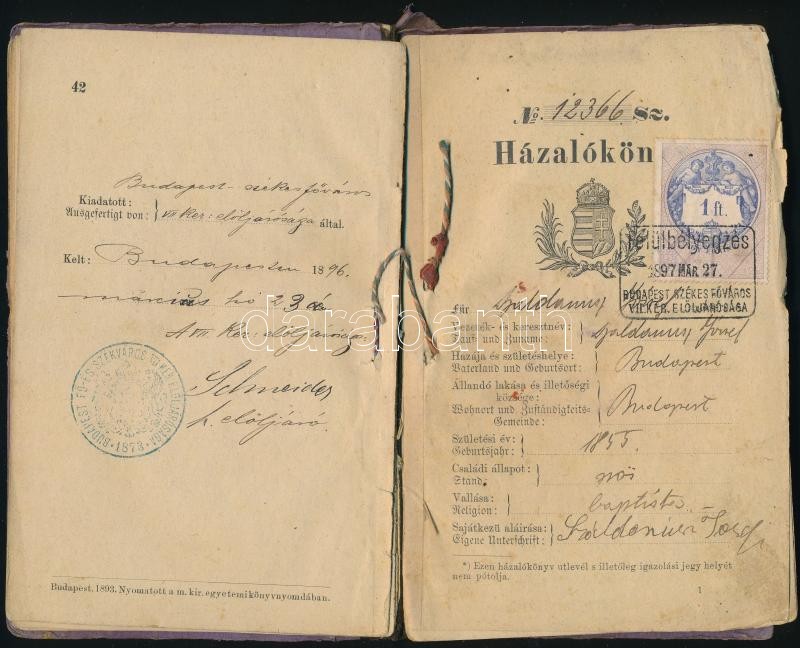 42
Budapest székesfőváros
Kiadatott:
Ausgefertigt von: VII ker. elöljárósága által.
Kelt: Budapesten 1896.
március hó 23á
A VII ker. elöljárósága
Schneider
h. elöljáró
BUDAPEST FŐ- ÉS SZÉKVÁROS
1873
Budapest, 1893. Nyomatott a m. kir. egyetemi könyvnyomdában.
№. 12366 sz.
Házalókön
1 ft.
Felülbélyegzés
1897 MÁR 27.
BUDAPEST SZÉKES FŐVÁROS
VII. KER. ELÖLJÁRÓSÁGA
für
Vezeték- és keresztnév:
Tauf- und Zuname:
József
Hazája és születéshelye:
Vaterland und Geburtsort: Budapest
Állandó lakása és illetőségi
községe:
Wohnort und Zuständigkeits-
Gemeinde: Budapest
Születési év:
Geburtsjahr: 1855
Családi állapot:
Stand: nős
Vallása:
Religion: baptista
Sajátkezű aláirása:
Eigene Unterschrift:
*) Ezen házalókönyv utlevél s illetőleg igazolási jegy helyét
nem pótolja.
1
darabanth